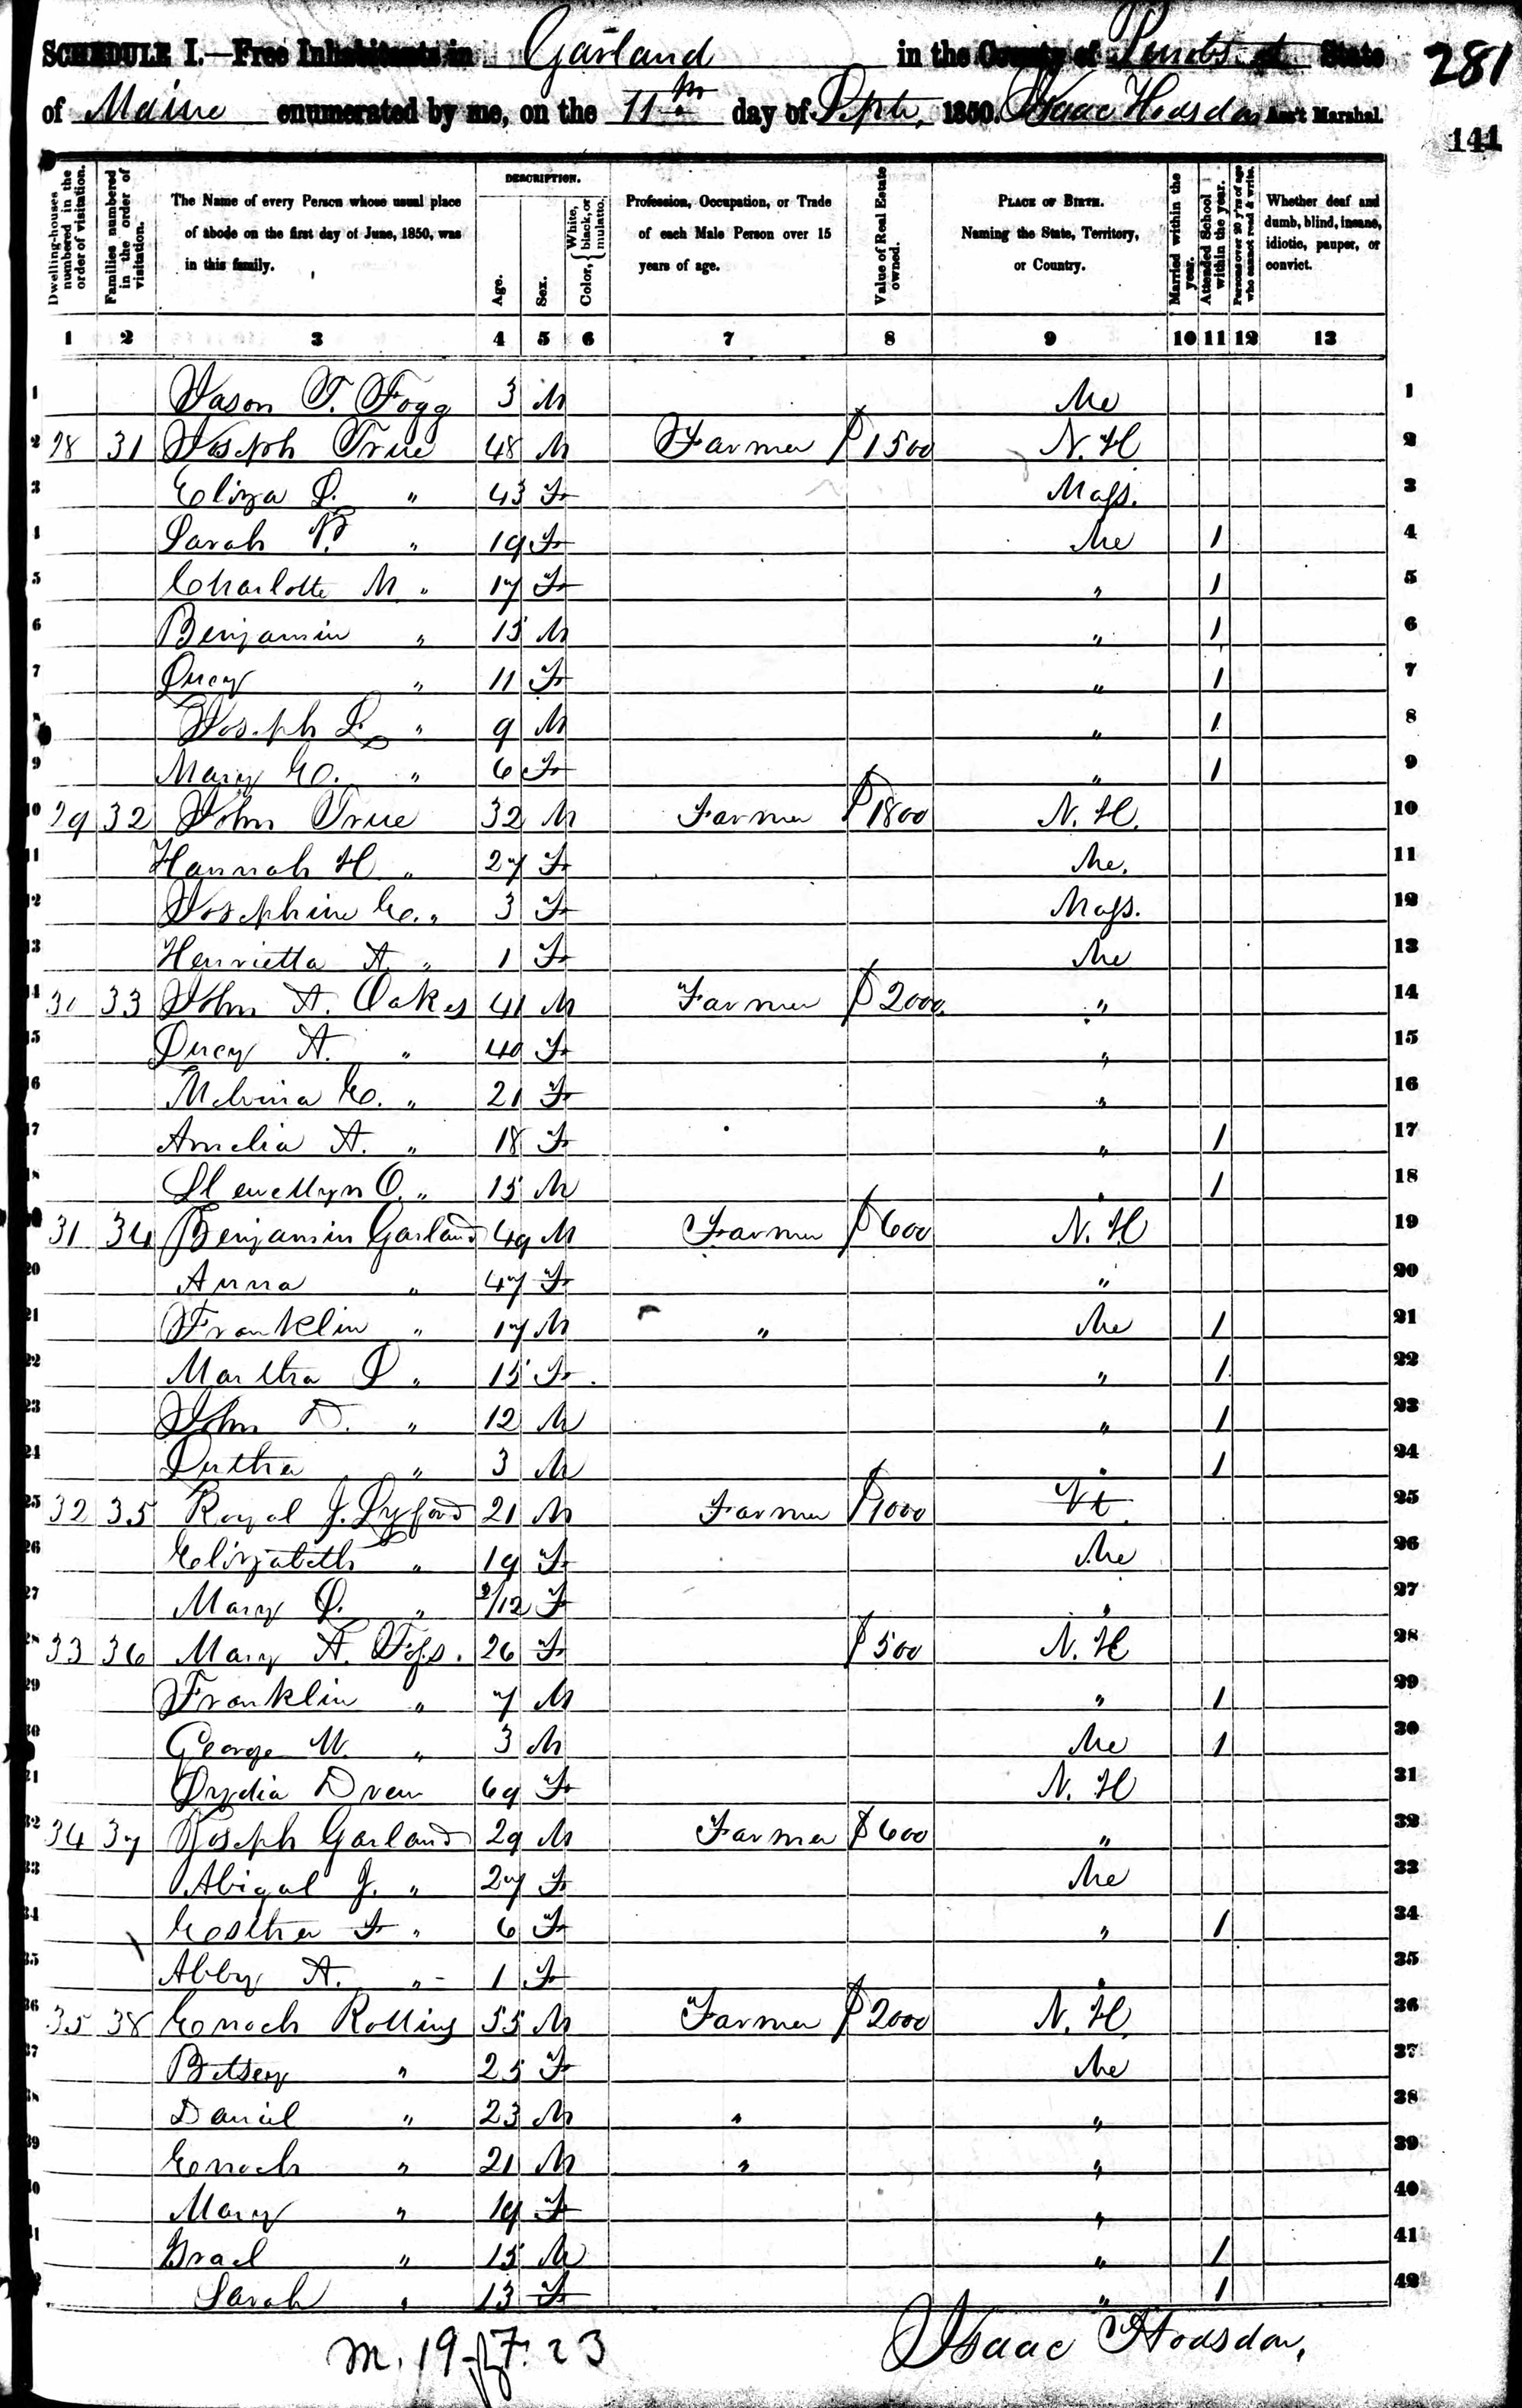 SCHEDULE I.—Free Inhabitants in Garland in the County of Penobs.ct State 281
of Maine enumerated by me, on the 11th day of Sept. 1850. Isaac Hodsdon Ass't Marshal.
141
Dwelling-houses numbered in the order of visitation. Families numbered in the order of visitation. The Name of every Person whose usual place of abode on the first day of June, 1850, was in this family. DESCRIPTION. Age. Sex. Color, { White, black, or mulatto. Profession, Occupation, or Trade of each Male Person over 15 years of age. Value of Real Estate owned. PLACE OF BIRTH. Naming the State, Territory, or Country. Married within the year. Attended School within the year. Persons over 20 y'rs of age who cannot read & write. Whether deaf and dumb, blind, insane, idiotic, pauper, or convict.
1 2 3 4 5 6 7 8 9 10 11 12 13
1 Jason T. Fogg 3 M Me 1
2 28 31 Joseph True 48 M Farmer $1500 N. H 2
3 Eliza L. " 43 F Mass. 3
4 Sarah " 19 F Me 1 4
5 Charlotte M. " 17 F " 1 5
6 Benjamin " 15 M " 1 6
7 Lucy " 11 F " 1 7
8 Joseph L. " 9 M " 1 8
9 Mary E. " 6 F " 1 9
10 29 32 John True 32 M Farmer $1800 N. H. 10
11 Hannah H. " 27 F Me. 11
12 Josephine E. " 3 F Mass. 12
13 Henrietta A. " 1 F Me 13
14 30 33 John A. Oakes 41 M Farmer $2000. " 14
15 Lucy A. " 40 F " 15
16 Melvina E. " 21 F " 16
17 Amelia A. " 18 F " 1 17
18 Llewellyn O. " 15 M " 1 18
19 31 34 Benjamin Garland 49 M Farmer $600 N. H 19
20 Anna " 47 F " 20
21 Franklin " 17 M " Me 1 21
22 Martha L " 15 F " 1 22
23 John D. " 12 M " 1 23
24 Luther " 3 M " 1 24
25 32 35 Royal J. Lyford 21 M Farmer $1000 Vt. 25
26 Elizabeth " 19 F Me 26
27 Mary L. " 2/12 F " 27
28 33 36 Mary A. Foss. 26 F $500 N. H 28
29 Franklin " 7 M " 1 29
30 George W. " 3 M Me 1 30
31 Lydia Drew 69 F N. H 31
32 34 37 Joseph Garland 29 M Farmer $600 " 32
33 Abigal J. " 27 F Me 33
34 Esther F " 6 F " 1 34
35 Abby A. " 1 F " 35
36 35 38 Enoch Rollins 55 M Farmer $2000 N. H. 36
37 Betsey " 25 F Me 37
38 Daniel " 23 M " " 38
39 Enoch " 21 M " " 39
40 Mary " 19 F " 40
41 Israel " 15 M " 1 41
42 Sarah " 13 F " 1 42
m. 19 f. 23 Isaac Hodsdon,